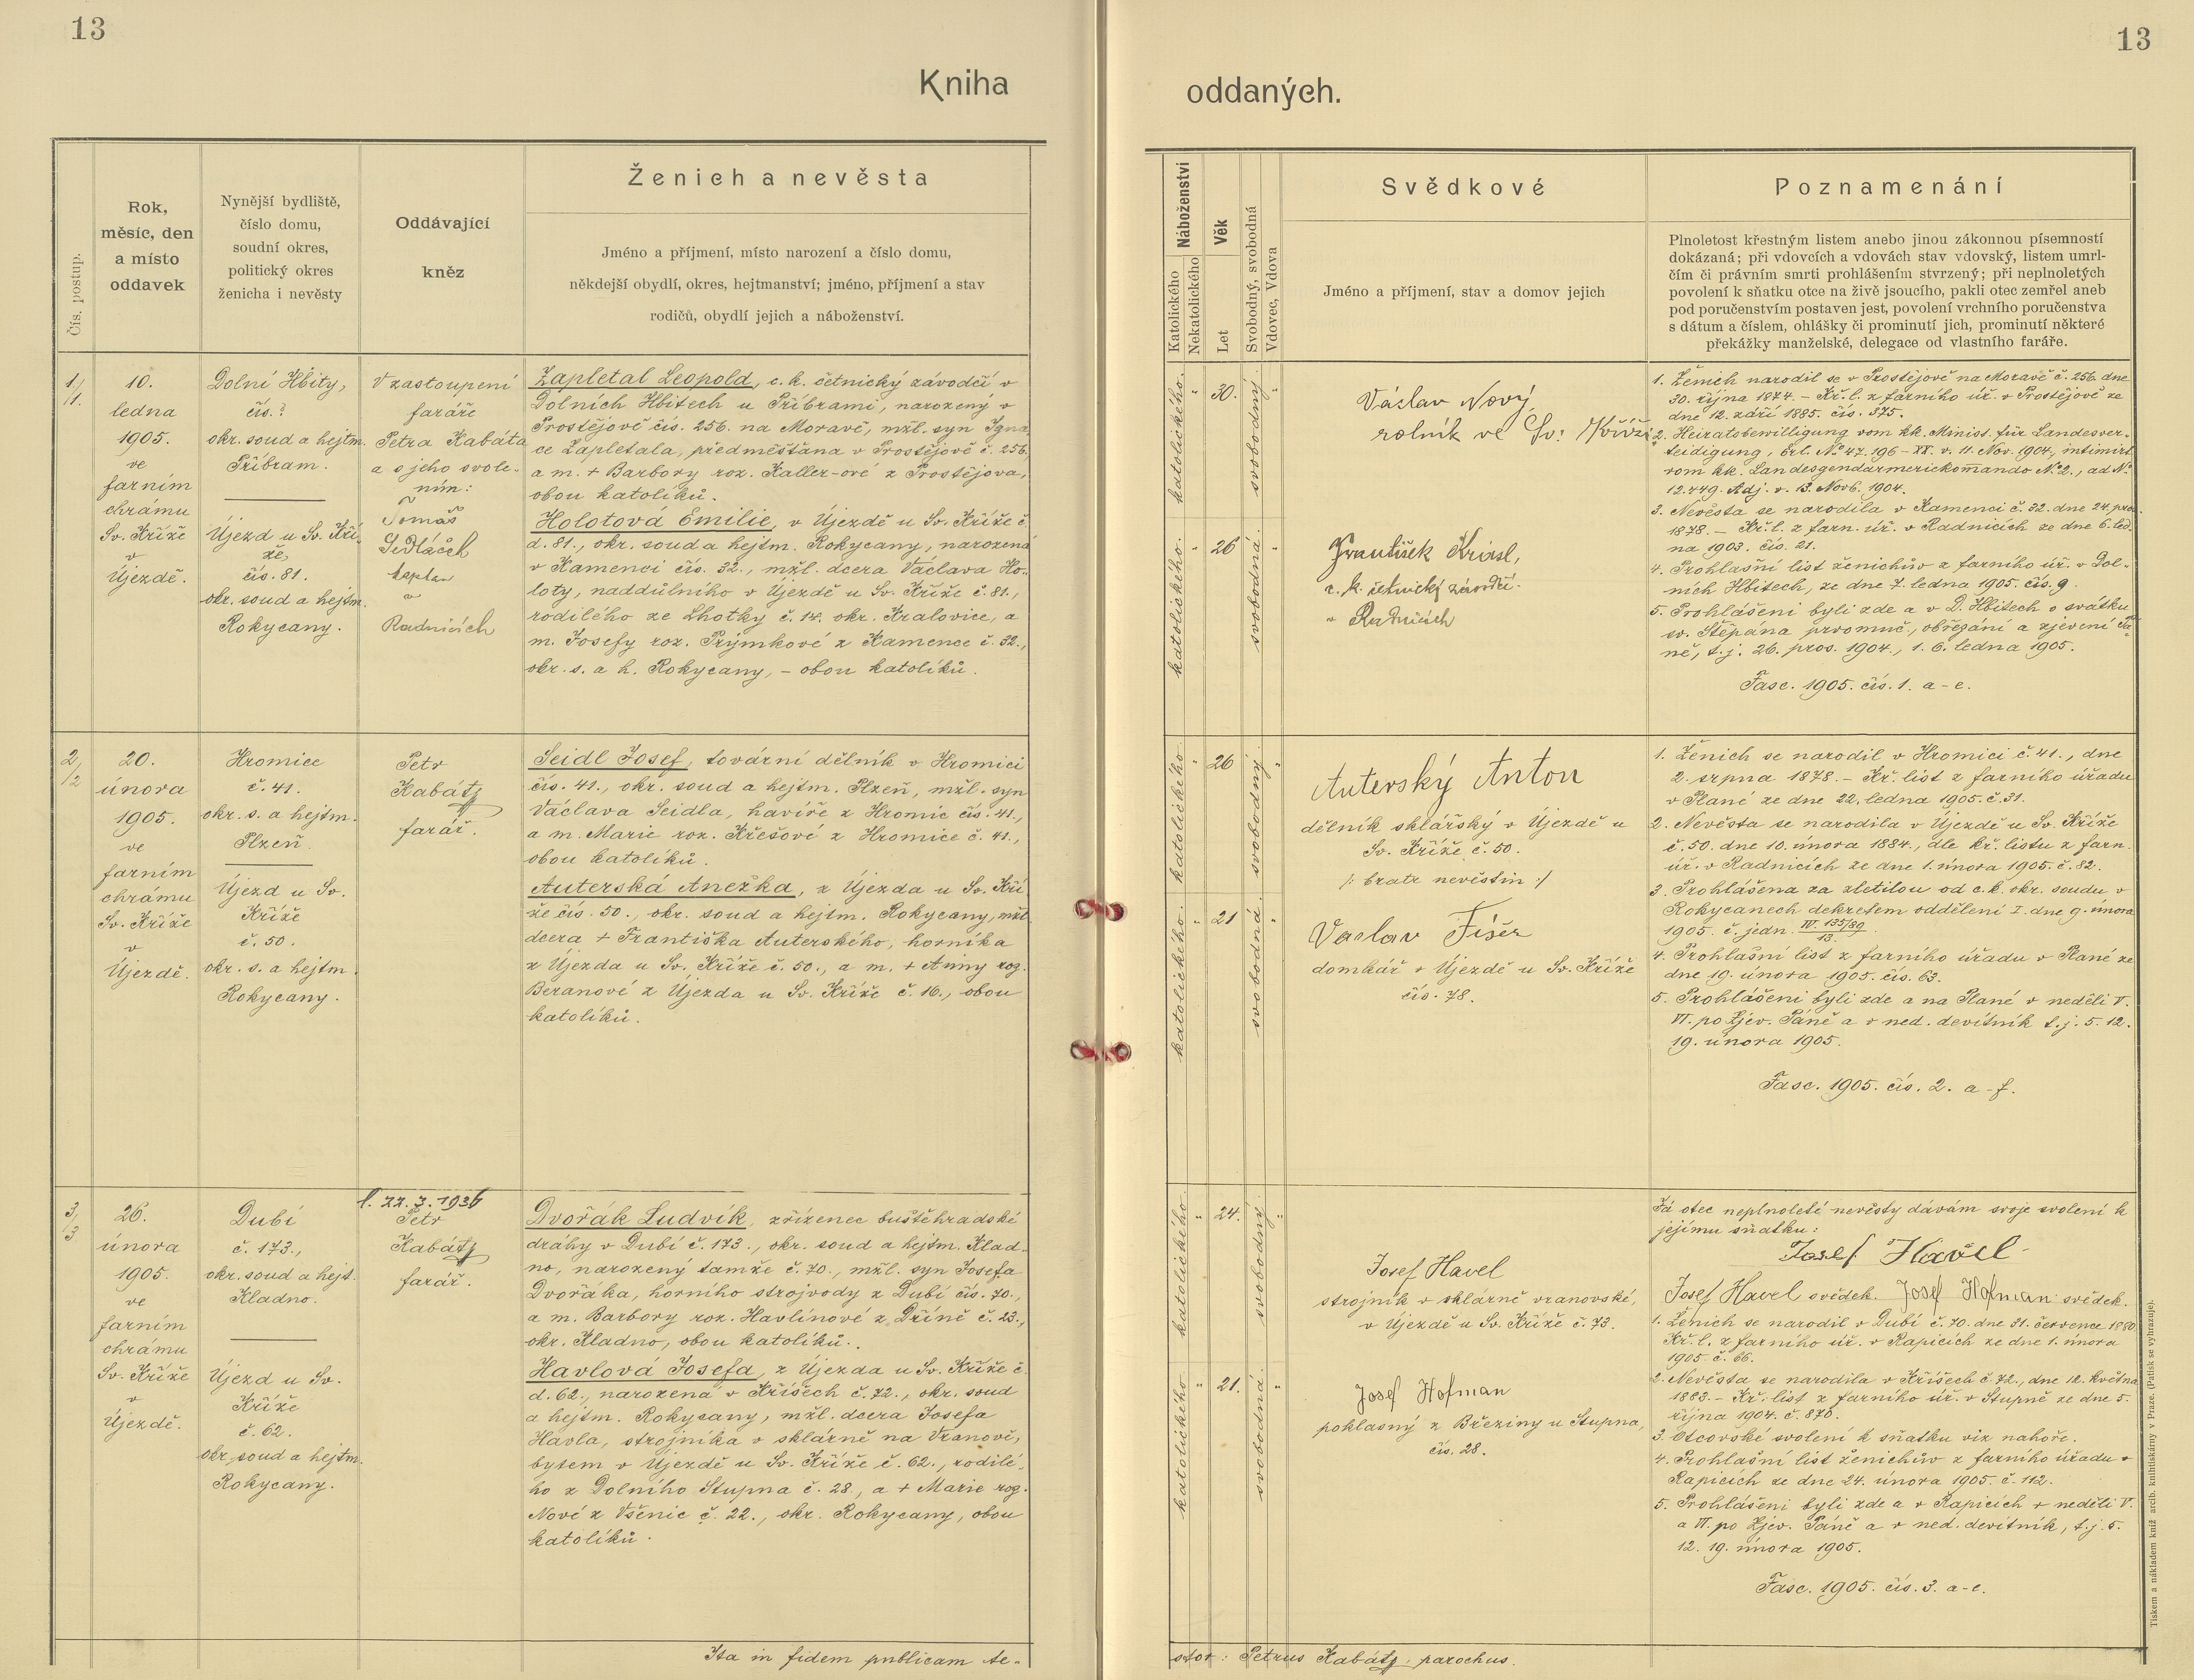 13
13
Kniha
oddaných.
Čís. postup.
Rok,
měsíc, den
a místo
oddavek
Nynější bydliště,
číslo domu,
soudní okres,
politický okres
ženicha i nevěsty
Oddávající
kněz
Ženich a nevěsta
Jméno a příjmení, místo narození a číslo domu,
někdejší obydlí, okres, hejtmanství; jméno, příjmení a stav
rodičů, obydlí jejich a náboženství.
Náboženství
Katolického
Nekatolického
Věk
Let
Svobodný, svobodná
Vdovec, Vdova
Svědkové
Jméno a příjmení, stav a domov jejich
Poznamenání
Plnoletost křestným listem anebo jinou zákonnou písemností
dokázaná; při vdovcích a vdovách stav vdovský, listem umrl-
čím či právním smrti prohlášením stvrzený; při neplnoletých
povolení k sňatku otce na živě jsoucího, pakli otec zemřel aneb
pod poručenstvím postaven jest, povolení vrchního poručenstva
s dátum a číslem, ohlášky či prominutí jich, prominutí některé
překážky manželské, delegace od vlastního faráře.
1./1.
10.
ledna
1905.
ve
farním
chrámu
Sv. Kříže
v
Újezdě.
Dolní Hbity,
čís.?
okr. soud a hejtm.
Příbram.
Újezd u Sv. Kří-
že,
čís. 81.
okr. soud a hejtm.
Rokycany.
V zastoupení
faráře
Petra Kabáta
a s jeho svole-
ním:
Tomáš
Sedláček
kaplan
v
Radnicích
Zapletal Leopold, c. k. četnický závodčí v
Dolních Hbitech u Příbrami, narozený v
Prostějově čís. 256. na Moravě, mžl. syn Igná-
ce Zapletala, předměšťána v Prostějově č. 256,
a m. + Barbory roz. Kaller-ové z Prostějova,
obou katolíků.
Holotová Emilie, v Újezdě u Sv. Kříže č.
d. 81., okr. soud a hejtm. Rokycany, narozená
v Kamenci čís. 32., mžl. dcera Václava Ho-
loty, naddůlního v Újezdě u Sv. Kříže č. 81.,
rodilého ze Lhotky č. 14. okr. Kralovice, a
m. Josefy roz. Prýmkové z Kamence č. 32.,
okr. s. a h. Rokycany, – obou katolíků.
katolického.
30.
svobodný.
katolického.
26
svobodná.
Václav Nový,
rolník ve Sv: Kříži
František Kriesl,
c. k. četnický závodčí
v Radnicích
1. Ženich narodil se v Prostějově na Moravě č. 256 dne
30. října 1874. – Kř. l. z farního úř. v Prostějově ze
dne 12. září 1885. čís. 575.
2. Heiratsbewilligung vom kk. Minist. für Landesver-
teidigung, Erl. No 47.196 – XX. v. 11. Nov. 1904, intimirt
vom kk. Landesgendarmeriekommando No 2., ad No
12.449. Adj. v. 13. Novb. 1904.
3. Nevěsta se narodila v Kamenci č. 32. dne 24. pro.
1878. – Kř. l. z farn. úř. v Radnicích ze dne 6. led-
na 1903. čís. 21.
4. Prohlašní list ženichův z farního úř. v Dol-
ních Hbitech, ze dne 7. ledna 1905. čís. 9.
5. Prohlášeni byli zde a v D. Hbitech o svátku
sv. Štěpána prvomuč., obřezání a zjevení Pá-
ně, t. j. 26. pros. 1904., 1. 6. ledna 1905.
Fasc. 1905. čís. 1. a-e.
2/2
20.
února
1905.
ve
farním
chrámu
Sv. Kříže
v
Újezdě.
Hromice
č. 41.
okr. s. a hejtm.
Plzeň.
Újezd u Sv.
Kříže
č. 50.
okr. s. a hejtm.
Rokycany.
Petr
Kabátj
farář.
Seidl Josef, tovární dělník v Hromici
čís. 41., okr. soud a hejtm. Plzeň, mžl. syn
Václava Seidla, havíře z Hromic čís. 41.,
a m. Marie roz. Křešové z Hromice č. 41.,
obou katolíků.
Auterská Anežka, z Újezda u Sv. Kří-
že čís. 50., okr. soud a hejtm. Rokycany, mžl.
dcera + Františka Auterského, horníka
z Újezda u Sv. Kříže č. 50., a m. + Anny roz.
Beranové z Újezda u Sv. Kříže č. 16., obou
katolíků.
katolického
26
svobodný.
katolického.
21
svobodná.
Auterský Anton
dělník sklářský v Újezdě u
Sv. Kříže č. 50.
/: bratr nevěstin :/
Vaclav Fišer
domkář v Újezdě u Sv. Kříže
čís. 78.
1. Ženich se narodil v Hromici č. 41., dne
2. srpna 1878. – Kř. list z farního úřadu
v Plané ze dne 22. ledna 1905. č. 31.
2. Nevěsta se narodila v Újezdě u Sv. Kříže
č. 50. dne 10. února 1884., dle kř. listu z farn.
úř. v Radnicích ze dne 1. února 1905. č. 82.
3. Prohlášena za zletilou od c. k. okr. soudu v
Rokycanech dekretem oddělení I. dne 9. února
1905. č. jedn. IV. 135/89/13.
4. Prohlašní list z farního úřadu v Plané ze
dne 19. února 1905. čís. 63.
5. Prohlášeni byli zde a na Plané v neděli V.
VI. po Zjev. Páně a v ned. devítník t. j. 5. 12.
19. února 1905.
Fasc. 1905. čís. 2. a-f.
3/3
26.
února
1905.
ve
farním
chrámu
Sv. Kříže
v
Újezdě.
Dubí
č. 173.,
okr. soud a hejt.
Kladno.
Újezd u Sv.
Kříže
č. 62.
okr. soud a hejtm.
Rokycany.
l. 22. 7. 1936
Petr
Kabátj
farář.
Dvořák Ludvík, zřízenec buštěhradské
dráhy v Dubí č. 173., okr. soud a hejtm. Klad-
no, narozený tamže č. 70., mžl. syn Josefa
Dvořáka, horního strojvody z Dubí čís. 70.,
a m. Barbory roz. Havlínové z Dříně č. 23.,
okr. Kladno, obou katolíků.
Havlová Josefa, z Újezda u Sv. Kříže č.
d. 62., narozená v Kříšech č. 72., okr. soud
a hejtm. Rokycany, mžl. dcera Josefa
Havla, strojníka v sklárně na Vranově,
bytem v Újezdě u Sv. Kříže č. 62., rodilé-
ho z Dolního Stupna č. 28., a + Marie roz.
Nové z Všenic č. 22., okr. Rokycany, obou
katolíků.
katolického.
24.
svobodný.
katolického
21.
svobodná.
Josef Havel
strojník v sklárně vranovské,
v Újezdě u Sv. Kříže č. 73.
Josef Hofman
poklasný z Březiny u Stupna,
čís. 28.
Já otec neplnoleté nevěsty dávám svoje svolení k
jejímu sňatku:
Josef Havel
Josef Havel svědek. Josef Hofman svědek.
1. Ženich se narodil v Dubí č. 70. dne 31. července 1880
Kř. l. z farního úř. v Rapicích ze dne 1. února
1905. č. 66.
2. Nevěsta se narodila v Kříšech č. 72., dne 12. května
1883. – Kř. list z farního úř. v Stupně ze dne 5.
října 1904. č. 870.
3. Otcovské svolení k sňatku viz nahoře.
4. Prohlašní list ženichův z farního úřadu v
Rapicích ze dne 24. února 1905. č. 112.
5. Prohlášeni byli zde a v Rapicích v neděli V.
a VI. po Zjev. Páně a v ned. devítník, t. j. 5.
12. 19. února 1905.
Fasc. 1905. čís. 3. a-e.
Ita in fidem publicam te-
stor: Petrus Kabátj, parochus.
Tiskem a nákladem kníž. arcib. knihtiskárny v Praze. (Patisk se vyhrazuje).